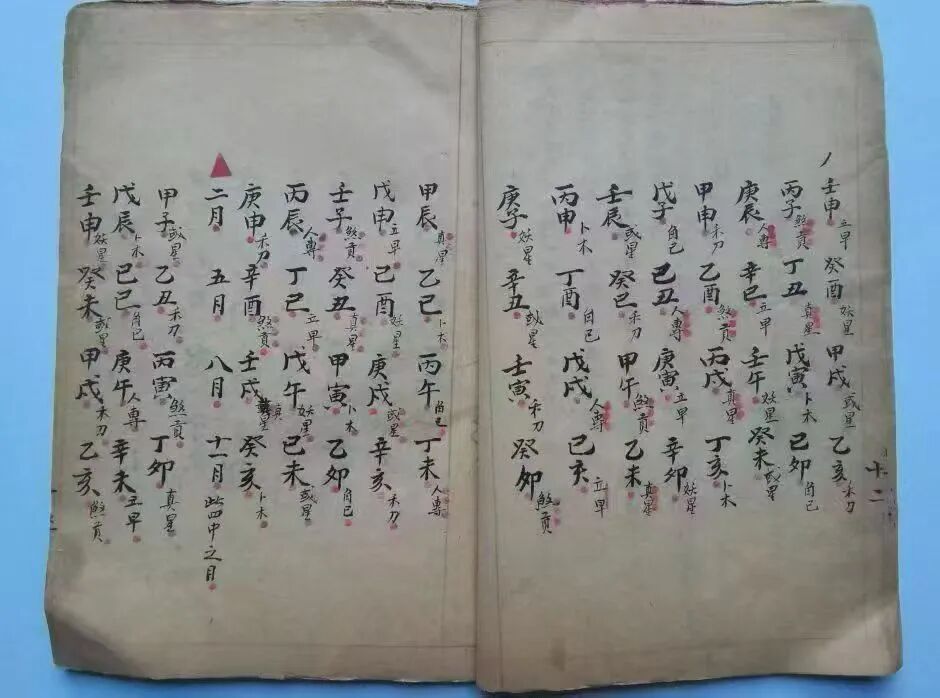 十二
壬申 立早 癸酉 妖星 甲戌 或星 乙亥 禾刀
丙子 煞貢 丁丑 真星 戊寅 卜木 己卯 自己
庚辰 人專 辛巳 立早 壬午 妖星 癸未 或星
甲申 禾刀 乙酉 煞貢 丙戌 真星 丁亥 卜木
戊子 自己 己丑 人專 庚寅 立早 辛卯 妖星
壬辰 或星 癸巳 禾刀 甲午 煞貢 乙未 真星
丙申 卜木 丁酉 自己 戊戌 人專 己亥 立早
庚子 妖星 辛丑 或星 壬寅 禾刀 癸卯 煞貢
甲辰 真星 乙巳 卜木 丙午 自己 丁未 人專
戊申 立早 己酉 妖星 庚戌 或星 辛亥 禾刀
壬子 煞貢 癸丑 真星 甲寅 卜木 乙卯 自己
丙辰 人專 丁巳 立早 戊午 妖星 己未 或星
庚申 禾刀 辛酉 煞貢 壬戌 真星 癸亥 卜木
二月 五月 八月 十一月 此四中之月
甲子 或星 乙丑 禾刀 丙寅 煞貢 丁卯 真星
戊辰 卜木 己巳 自己 庚午 人專 辛未 立早
壬申 妖星 癸未 或星 甲戌 禾刀 乙亥 煞貢